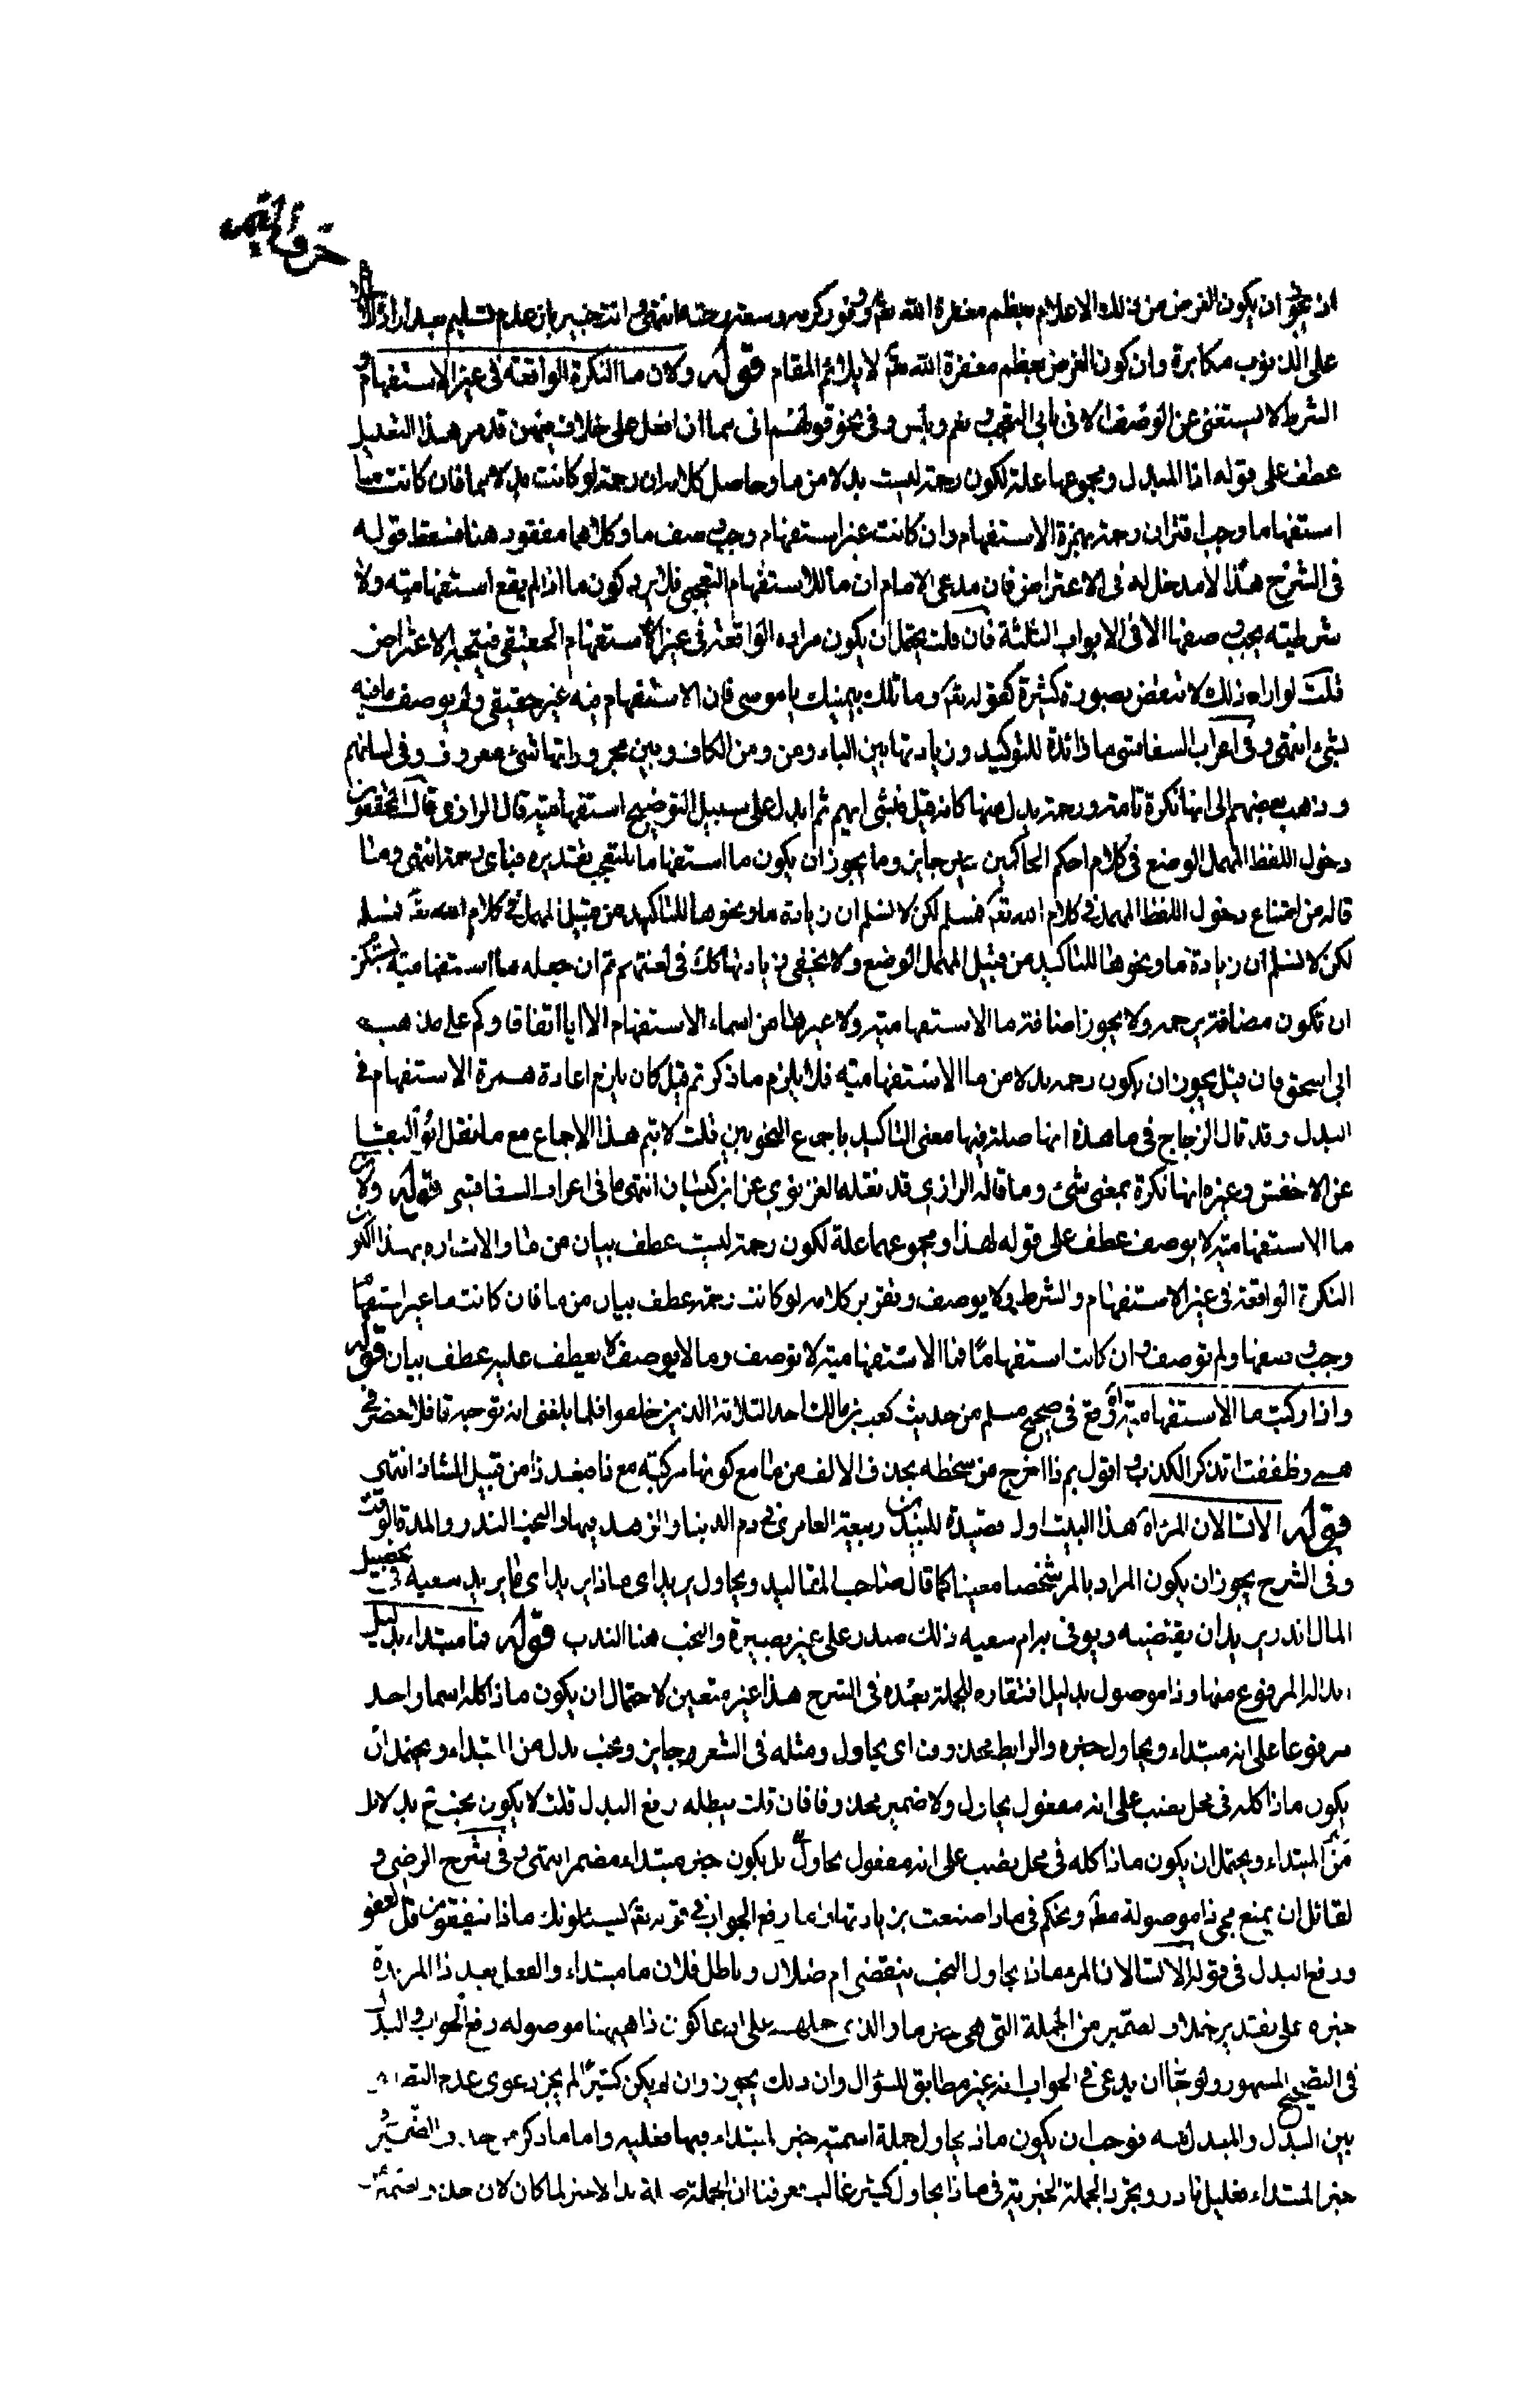 حرف الميم
اذ يجوز ان يكون الغرض من ذلك الاعلام بعظم مغفرة الله تعم ووفور كرمه وسعة رحمته انتهى وانت خبير بان عدم تسليم بعد ارادة
على الذنوب مكابرة وان كون الغرض بعظم مغفرة الله تعم لا يلائم المقام قوله ولان ما النكرة الواقعة في غير الاستفهام و
الشرط لا يستغنى عن الوصف الا في بابي التعجب ونعم وبئس وفي نحو قولهم اني مما ان افعل على خلاف فيهن قد مر هذا التعليل
عطف على قوله اذا المبدل ومجموعهما علة لكون رحمة ليست بدلا من ما وحاصل كلامه ان رحمة لو كانت بدلا من ما فان كانت ما
استفهاما وجب اقتران رحمة بهمزة الاستفهام وان كانت غير استفهام وجب وصف ما وكلاهما مفقود هنا فسقط قوله
في الشرح هذا لا مدخل له في الاعتراض فان مدعى الامام ان ما للاستفهام التعجبي فلا يريد كون ما اذا لم يقع استفهامية ولا
شرطية يجب وصفها الا في الابواب الثلثة فان قلت يحتمل ان يكون مراده الواقعة في غير الاستفهام الحقيقي فيتجه الاعتراض
قلت لو اراد ذلك لانتقض بصورة كثيرة كقوله تعم وما تلك بيمينك يا موسى فان الاستفهام فيه غير حقيقي ولم يوصف ما فيه
بشيء انتهى وفي اعراب السفاقسي ما زائدة للتوكيد وزيادتها بين الباء وعن ومن والكاف وبين مجروراتها شيء معروف في لسانهم
وذهب بعضهم الى انها نكرة تامة ورحمة بدل منها كانه قيل فبشيء ابهم ثم ابدل على سبيل التوضيح استفهامية قال الرازي قال المحققون
دخول اللفظ المهمل الوضع في كلام احكم الحاكمين غير جايز وما يجوز ان يكون ما استفهاما للتعجب تقديره فباي رحمة انتهى وما
قاله من امتناع دخول اللفظ المهمل في كلام الله تعم فمسلم لكن لا نسلم ان زيادة ما ونحوها للتاكيد من قبيل المهمل في كلام الله تعم نسلم
لكن لا نسلم ان زيادة ما ونحوها للتاكيد من قبيل المهمل الوضع ولا يخفى زيادتها كك في لغتهم ثم ان جعله ما استفهامية
ان تكون مضافة لرحمة ولا يجوز اضافة ما الاستفهامية ولا غيرها من اسماء الاستفهام الا ايا اتفاقا وكم على مذهب
ابي اسحق فان قيل يجوز ان يكون رحمة بدلا من ما الاستفهامية فلا يلزم ما ذكرتم قيل كان يلزم اعادة همزة الاستفهام في
البدل وقد قال الزجاج في ما هذه انها صلة فيها معنى التاكيد باجماع النحويين قلت لا يتم هذا الاجماع مع ما نقل ابو البقا
عن الاخفش وغيره انها نكرة بمعنى شيء وما قاله الرازي قد نقله الغزنوي عن ابن كيسان انتهى ما في اعراب السفاقسي قوله ولان
ما الاستفهامية لا يوصف عطف على قوله لهذا ومجموعهما علة لكون رحمة ليست عطف بيان من ما والاشارة بهذا الكون
النكرة الواقعة في غير الاستفهام والشرط لا يوصف وتقرير كلامه لو كانت رحمة عطف بيان من ما فان كانت ما غير استفهام
وجب وصفها ولم توصف وان كانت استفهاما فما الاستفهامية لا توصف وما لا يوصف لا يعطف عليه عطف بيان قوله
واذا ركبت ما الاستفهامية وقع في صحيح مسلم من حديث كعب بن مالك احد الثلاثة الذين خلفوا فلما بلغني انه توجه قافلا حضرني
همي وطفقت اتذكر الكذب واقول بم ذا اخرج من سخطه بحذف الالف من ما مع كونها مركبة مع ذا فهذا من قبيل الشاذ انتهى
قوله الا تسالان المرء هذا البيت اول قصيدة للبيد بن ربيعة العامري في ذم الدنيا والزهد فيها والنحب النذر والمدة والوقت
وفي الشرح يجوز ان يكون المراد بالمرء شخصا معينا كما قال صاحب المقاليد ويحاول يريد اي ماذا يريد اي ما يريد سعيه في تحصيل
المال انذر يريد ان يقضيه ويوفى برام سعيه ذلك صدر على غير بصيرة والنحب هنا الندب قوله فما مبتداء بدليل
ابداله المرفوع منها وذا موصول بدليل افتقاره للجملة بعده في الشرح هذا غير متعين لاحتمال ان يكون ماذا كله اسما واحد
مرفوعا على انه مبتداء ويحاول خبره والرابط محذوف اي يحاوله ومثله في الشعر جايز ونحب بدل من المبتداء ويحتمل ان
يكون ماذا كله في محل نصب على انه مفعول يحاول ولا ضمير محذوفا فان قلت يبطله رفع البدل قلت لا يكون نحب ح بدلا
من المبتداء ويحتمل ان يكون ماذا كله في محل نصب على انه مفعول يحاول بل يكون خبر مبتداء مضمر انتهى وفي شرح الرضي و
لقائل ان يمنع مجيء ذا موصولة مط ويحكم في ماذا صنعت بزيادتها واما رفع الجواب في قوله تعم يسئلونك ماذا ينفقون قل العفو
ورفع البدل في قوله الا تسالان المرء ماذا يحاول انحب فيقضى ام ضلال وباطل فلان ما مبتداء والفعل بعد ذا المزيدة
خبره على تقدير حذف الضمير من الجملة التي هي خبر ما والذي حملهم على ادعا كون ذا ههنا موصوله رفع الجواب والبدل
في الفصيح المشهور ولو جاز ان يدعى في الجواب انه غير مطابق للسؤال وان ذلك يجوز وان لم يكن كثيرا لم يجز دعوى عدم التطابق
بين البدل والمبدل منه فوجب ان يكون ماذا يحاول جملة اسمية خبر المبتداء فيها فعلية واما ما ذكر من حذف الضمير و
خبر المبتداء فقليل نادر وتجرد الجملة الخبرية في ماذا يحاول كثير غالب فعرفنا ان الجملة صلة لذا لا خبر لما كان لان حذف الضمير من